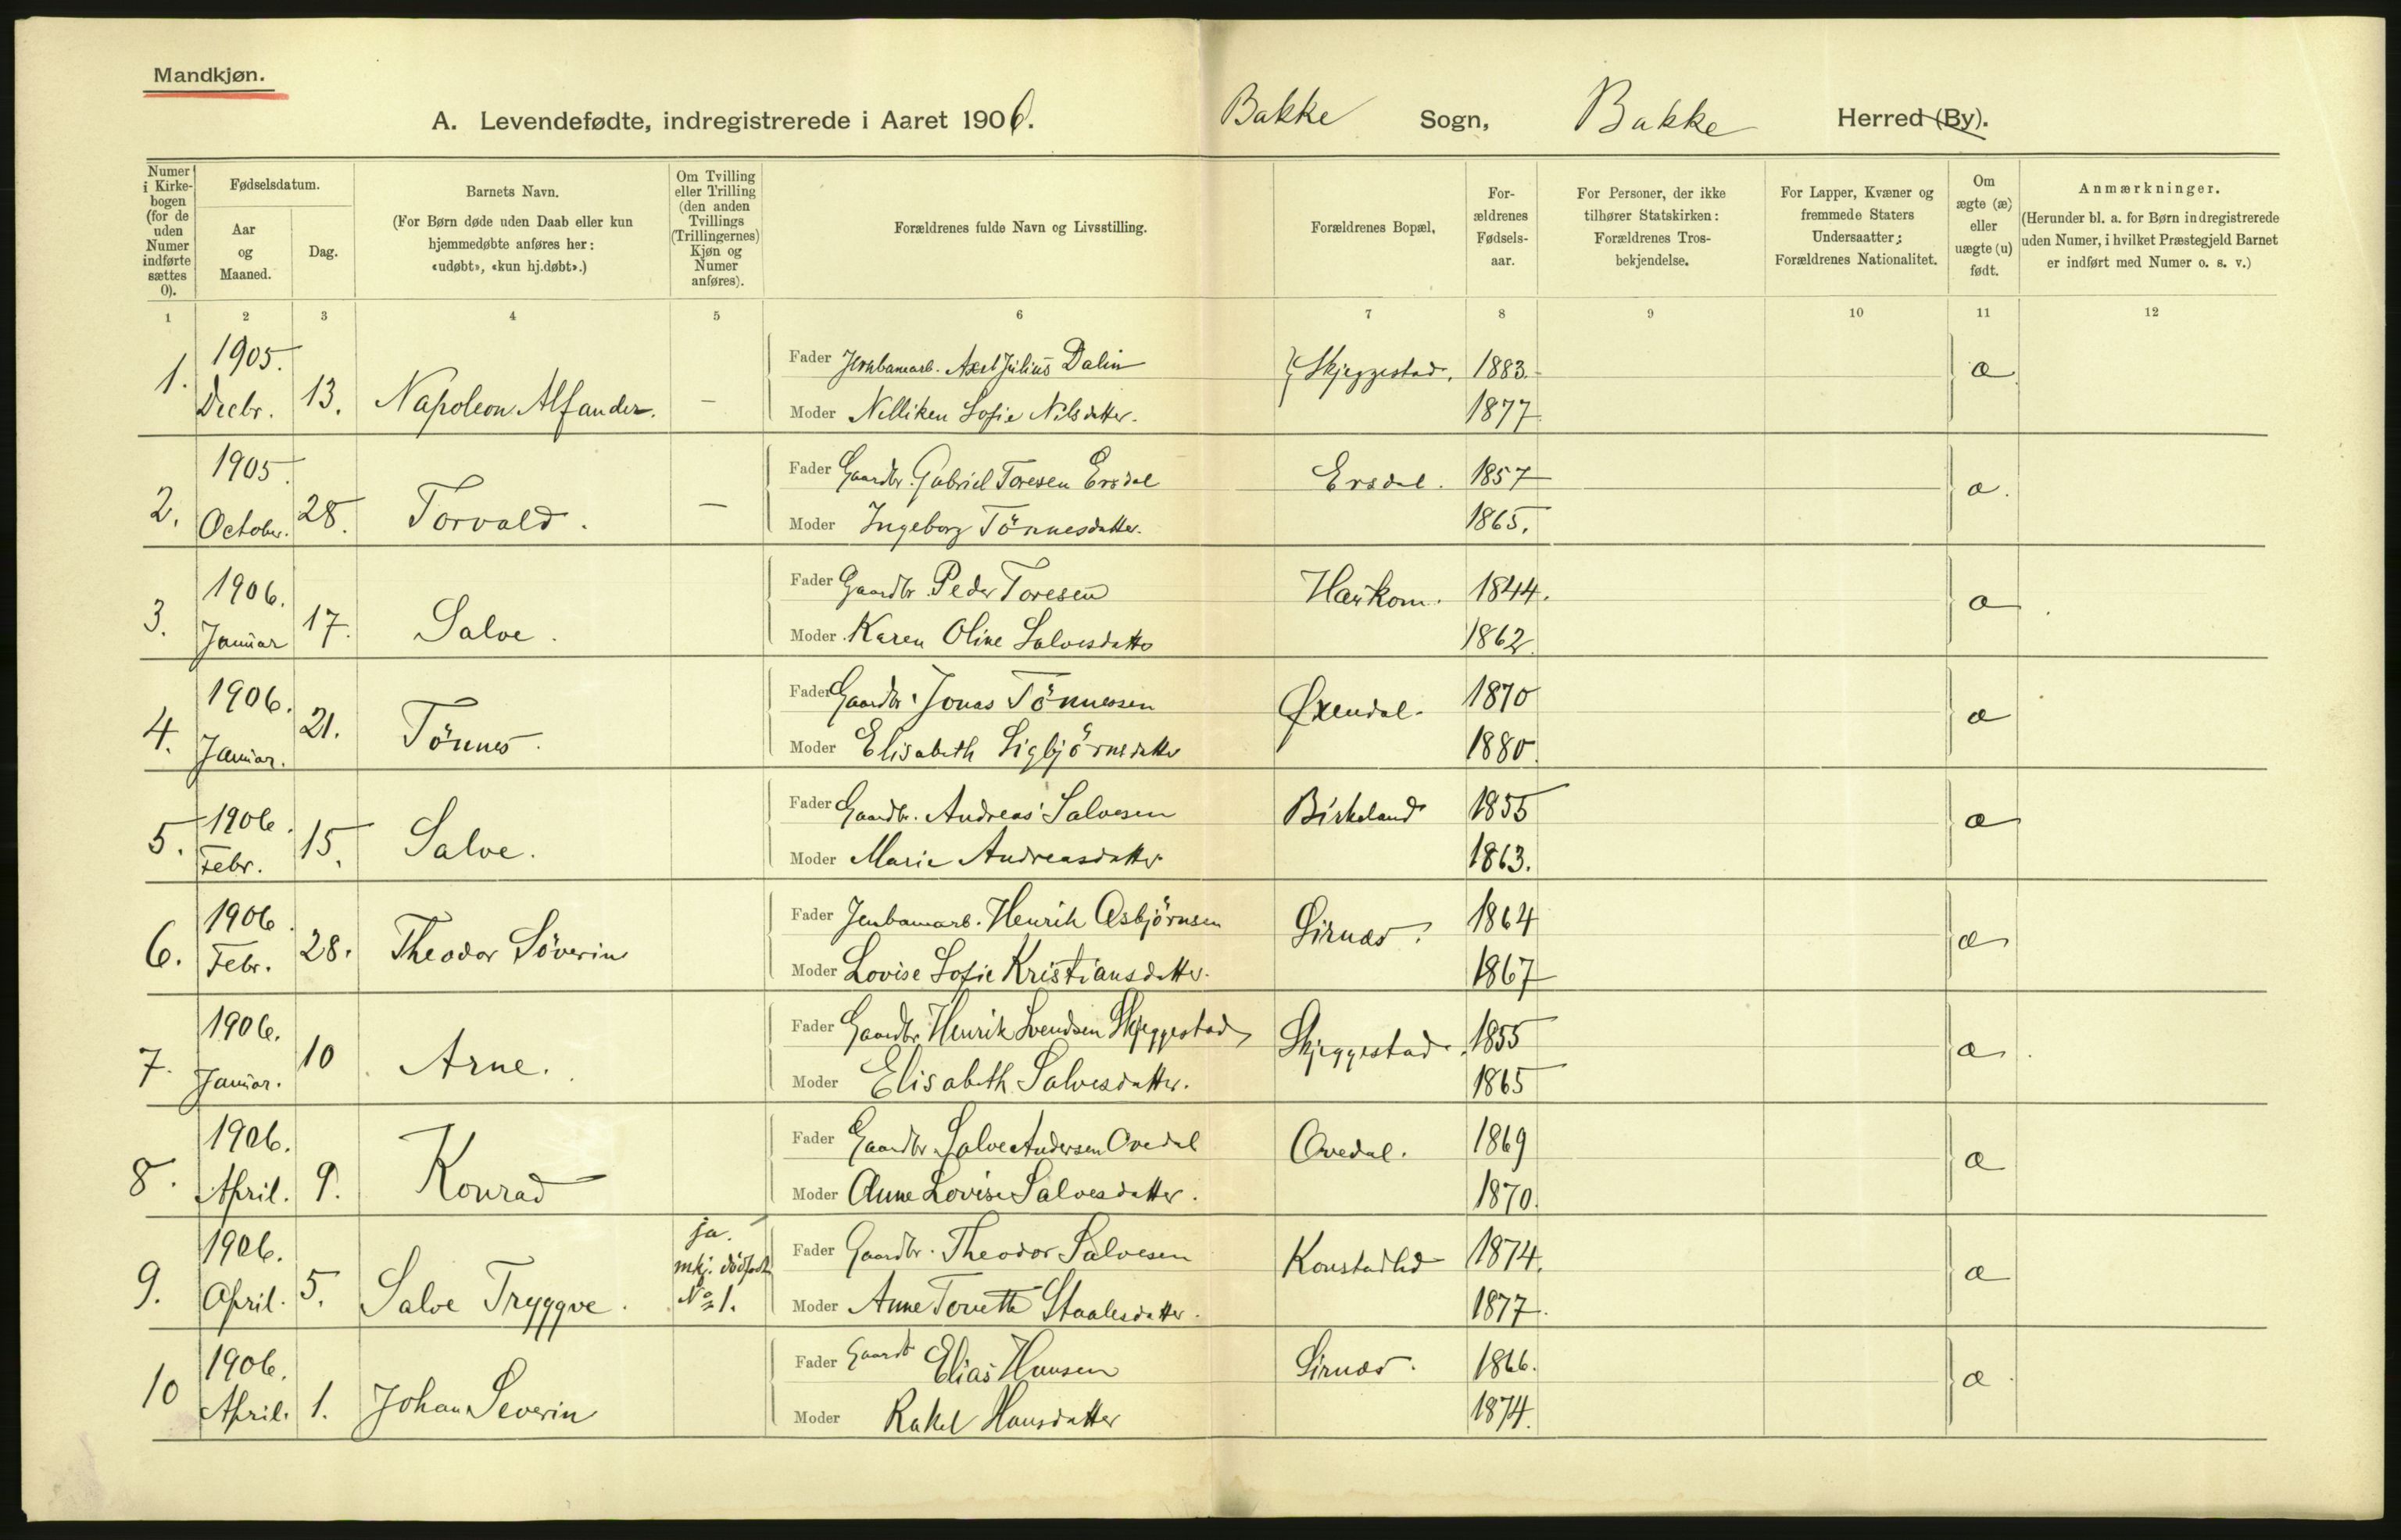 Mandkjøn.
A. Levendefødte, indregistrerede i Aaret 1906. Bakke Sogn, Bakke Herred (By).
Numer i Kirkebogen (for de uden Numer indførte sættes 0).
Fødselsdatum.
Aar og Maaned.
Dag.
Barnets Navn.
(For Børn døde uden Daab eller kun hjemmedøbte anføres her: «udøbt», «kun hj.døbt».)
Om Tvilling eller Trilling (den anden Tvillings (Trillingernes) Kjøn og Numer anføres).
Forældrenes fulde Navn og Livsstilling.
Forældrenes Bopæl,
Forældrenes Fødselsaar.
For Personer, der ikke tilhører Statskirken: Forældrenes Trosbekjendelse.
For Lapper, Kvæner og fremmede Staters Undersaatter; Forældrenes Nationalitet.
Om ægte (æ) eller uægte (u) født.
Anmærkninger.
(Herunder bl. a. for Børn indregistrerede uden Numer, i hvilket Præstegjeld Barnet er indført med Numer o. s. v.)
1 2 3 4 5 6 7 8 9 10 11 12
1. 1905. Decbr. 13. Napoleon Alfander. — Fader Jernbanearb. Axel Julius Dalin Skjeggestad. 1883. æ
Moder Nelliken Sofie Nilsdatter. 1877
2. 1905. October. 28. Torvald. — Fader Gaardbr. Gabriel Toresen Ersdal Ersdal. 1857 æ.
Moder Ingeborg Tönnesdatter. 1865.
3. 1906. Januar 17. Salve. Fader Gaardbr. Peder Toresen Haukom. 1844. æ
Moder Karen Oline Salvesdatter 1862.
4. 1906. Januar. 21. Tönnes. Fader Gaardbr. Jonas Tönnessen Øxendal. 1870 æ
Moder Elisabeth Sigbjörnsdatter 1880.
5. 1906. Febr. 15. Salve. Fader Gaardbr. Andreas Salvesen Birkeland 1855 æ
Moder Marie Andreasdatter 1863.
6. 1906. Febr. 28. Theodor Söverin Fader Jernbanearb. Henrik Asbjörnsen Sirnæs. 1864 æ
Moder Lovise Sofie Kristiansdatter. 1867
7. 1906. Januar. 10 Arne. Fader Gaardbr. Henrik Svendsen Skjeggestad Skjeggestad. 1855 æ
Moder Elisabeth Salvesdatter. 1865
8. 1906. April. 9. Konrad Fader Gaardbr. Salve Andersen Ovedal Ovedal. 1869 æ
Moder Anne Lovise Salvesdatter. 1870.
9. 1906. April. 5. Salve Tryggve. ja. mkj. dödfödt No 1. Fader Gaardbr. Theodor Salvesen Konstadlid 1874. æ
Moder Anne Staalesdatter. 1877.
10 1906. April. 1. Johan Severin Fader Gaardb Elias Hansen Sirnæs. 1866. æ
Moder Rakel Hansdatter 1874.